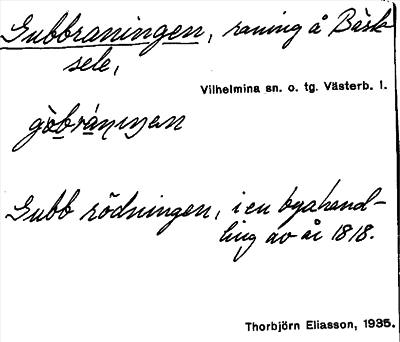 Gubbraningen, raning å Bäsk-
sele,
Vilhelmina sn. o. tg. Västerb. l.
Gubb rödningen, i en byahand-
ling av år 1818.
Thorbjörn Eliasson, 1935.